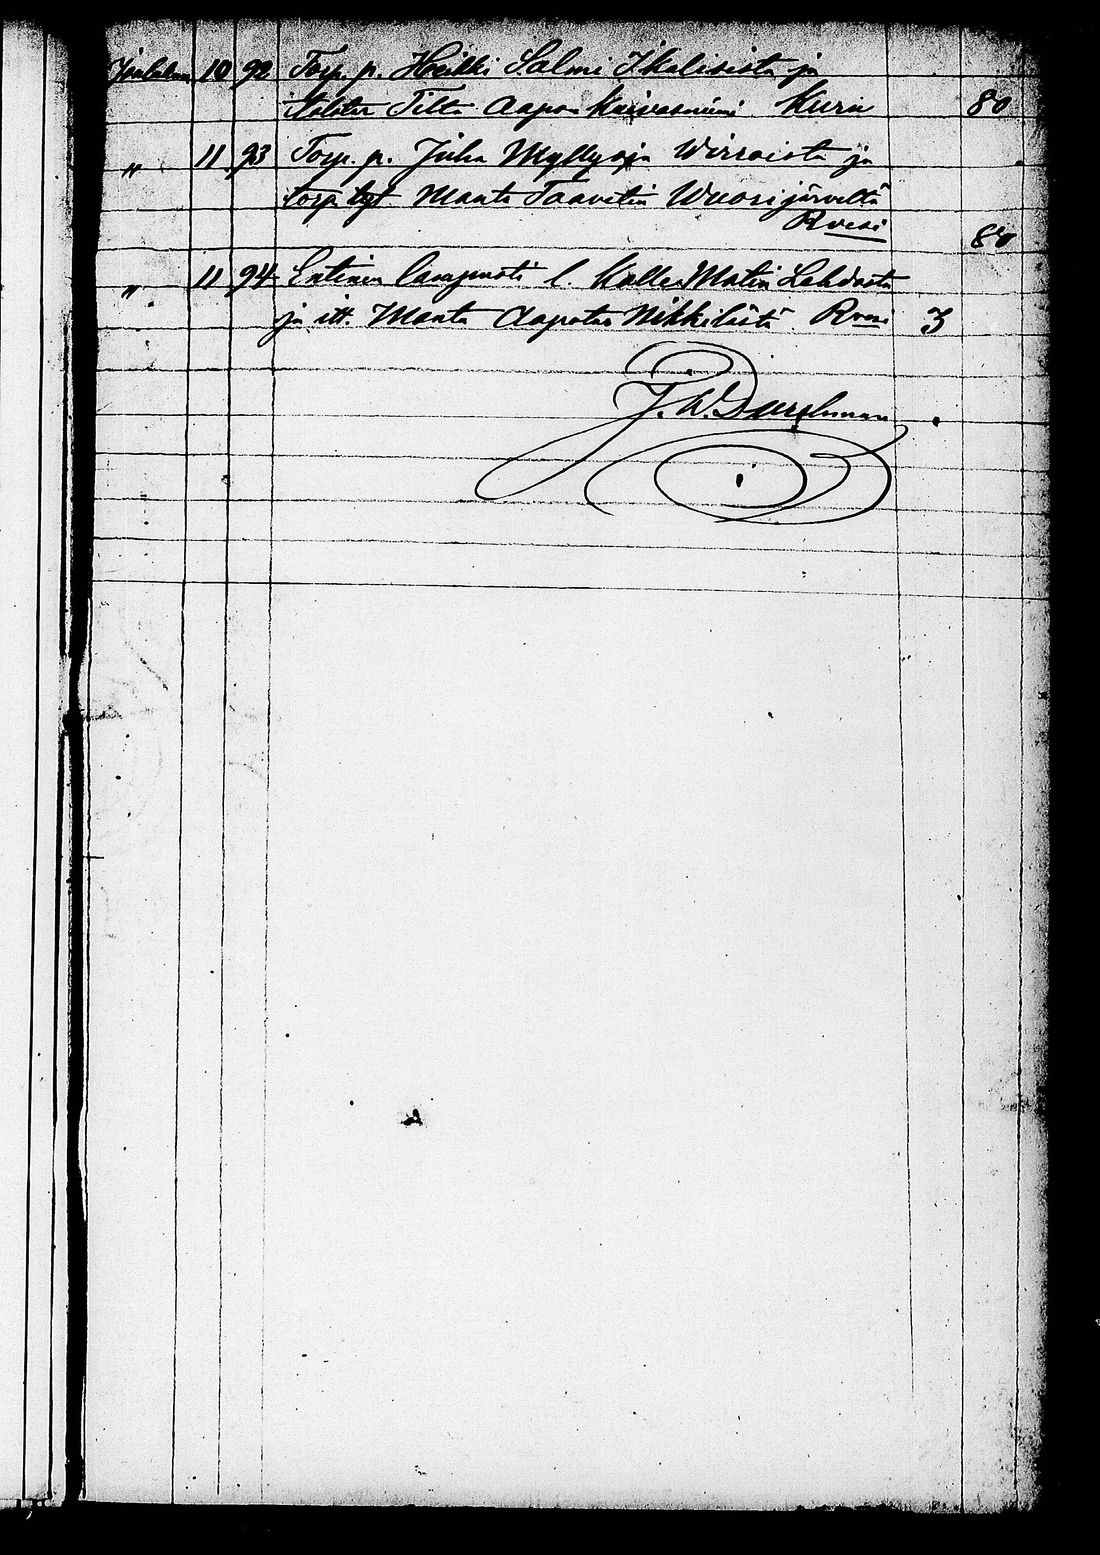 Joulukuu 10 92 Torp. p. Heikki Salmi Ikalisista ja
Tilta Aapon Kaivosniemi Kuru 80
" 11 93 Torp. p. Juha Myllyoja Wirroista ja
torp. tyt Manta Taavetin Wuorijärveltä
Rvesi 80
" 11 94 Entinen lampuoti l. Kalle Matin Lahdesta
ja itt. Manta Aapotar Nikkilästä Rvesi 3
J. W. Durchman